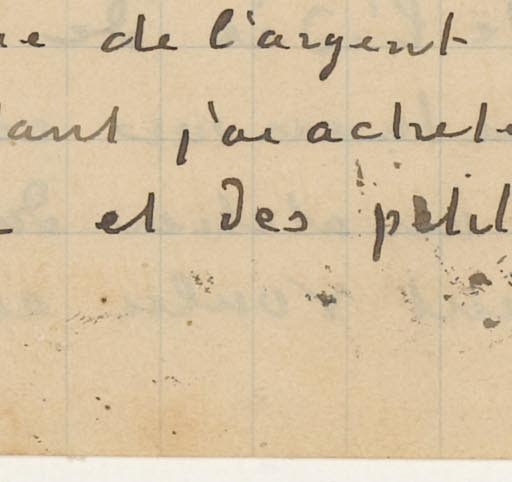 de l'argent
j'ai achete
et des petit